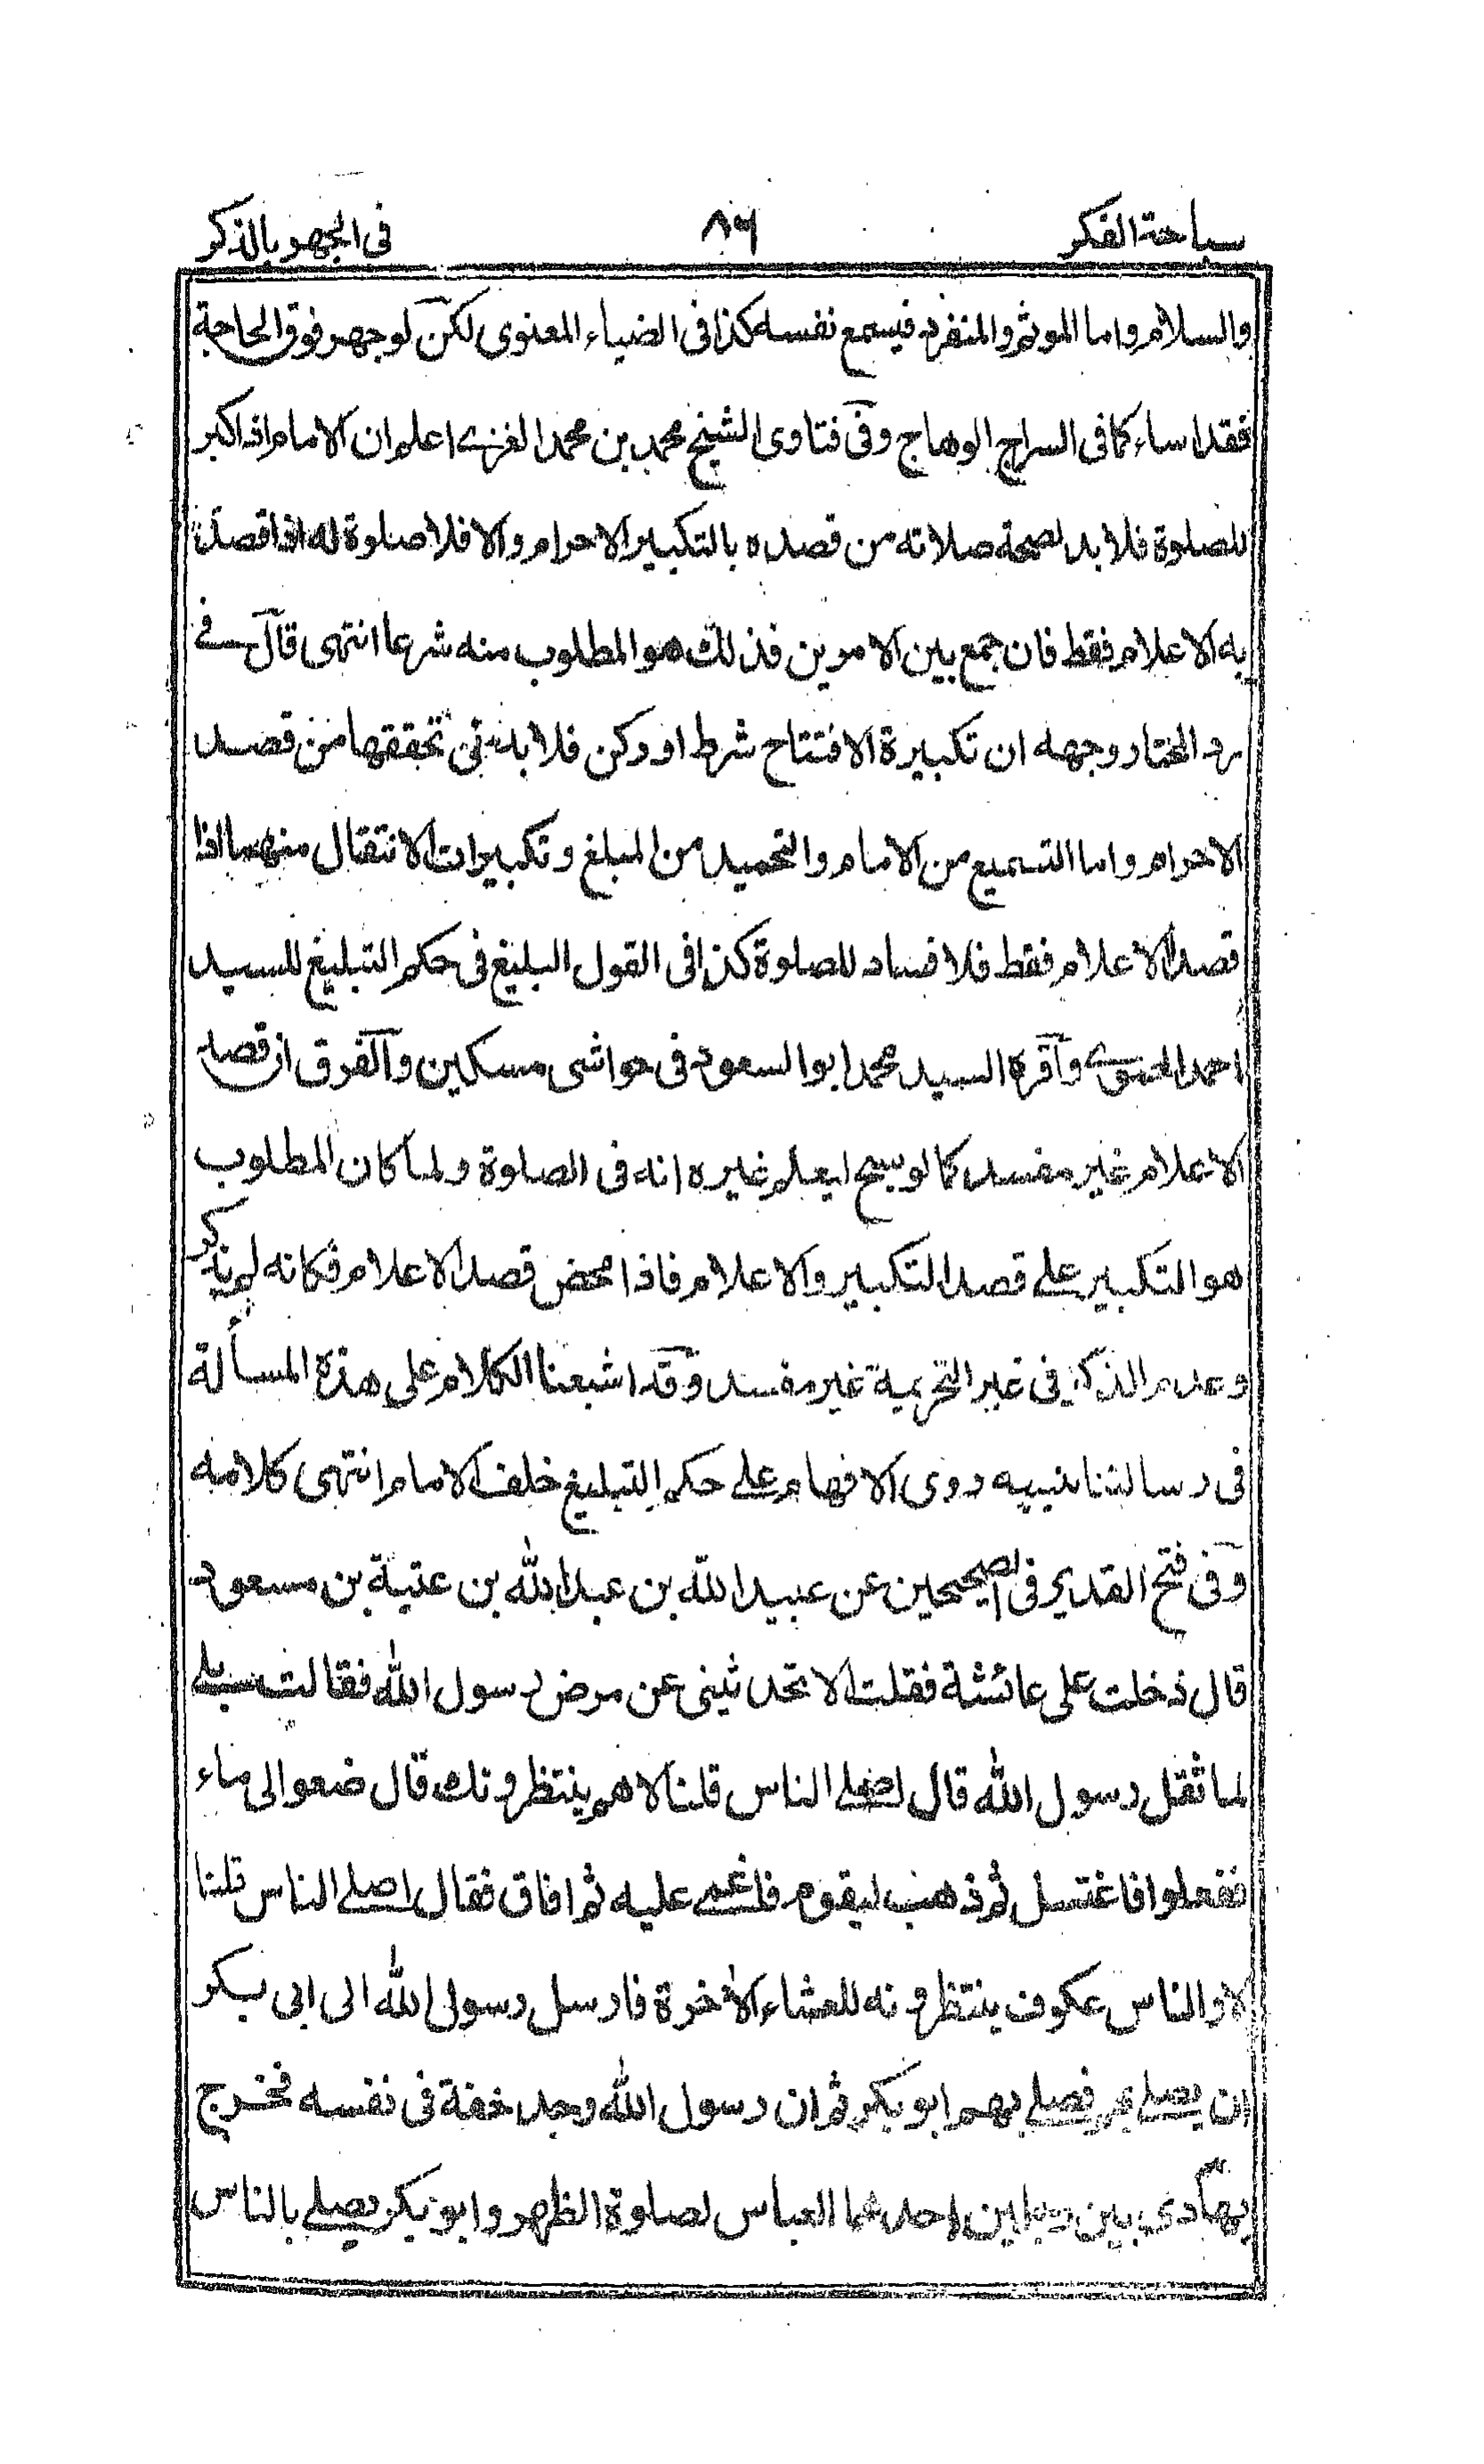 سباحة الفكر
٨٦
فى الجهر بالذكر
والسلام واما الموتم والمنفرد فيسمع نفسه كذا فى الضياء المعنوى لكن لو جهر فوق الحاجة
فقد اساء كما فى السراج الوهاج وفى فتاوى الشيخ محمد بن محمد الغزى اعلم ان الامام اذا كبر
للصلوة فلا بد لصحة صلاته من قصده بالتكبير الاحرام والا فلا صلوة له اذا قصد
به الاعلام فقط فان جمع بين الامرين فذلك هو المطلوب منه شرعا انتهى قال فى
رد المختار وجهه ان تكبيرة الافتتاح شرط او ركن فلا بد فى تحققها من قصد
الاحرام واما التسميع من الامام والتحميد من المبلغ وتكبيرات الانتقال منهما اذا
قصد الاعلام فقط فلا فساد للصلوة كذا فى القول البليغ فى حكم التبليغ للسيد
احمد الحموى واقره السيد محمد ابو السعود فى حواشى مسكين والفرق ان قصد
الاعلام غير مفسد كما لو سبح ليعلم غيره انه فى الصلوة ولما كان المطلوب
هو التكبير على قصد التكبير والاعلام فاذا محض قصد الاعلام فكانه لم يذكر
وعدم الذكر فى غير التحريمة غير مفسد وقد اشبعنا الكلام على هذه المسألة
فى رسالتنا تنبيه ذوى الافهام على حكم التبليغ خلف الامام انتهى كلامه
وفى فتح القدير فى الصحيحين عن عبيد الله بن عبد الله بن عتبة بن مسعود
قال دخلت على عائشة فقلت الا تحدثينى عن مرض رسول الله فقالت بلى
لما ثقل رسول الله قال اصلى الناس قلنا لا هم ينتظرونك قال ضعوا لى ماء
ففعلوا فاغتسل ثم ذهب ليقوم فاغمى عليه ثم افاق فقال اصلى الناس قلنا
لا والناس عكوف ينتظرونه للعشاء الاخرة فارسل رسول الله الى ابى بكر
ان يصلى بهم فصلى بهم ابو بكر ثم ان رسول الله وجد خفة فى نفسه فخرج
يهادى بين رجلين احدهما العباس لصلوة الظهر وابو بكر يصلى بالناس